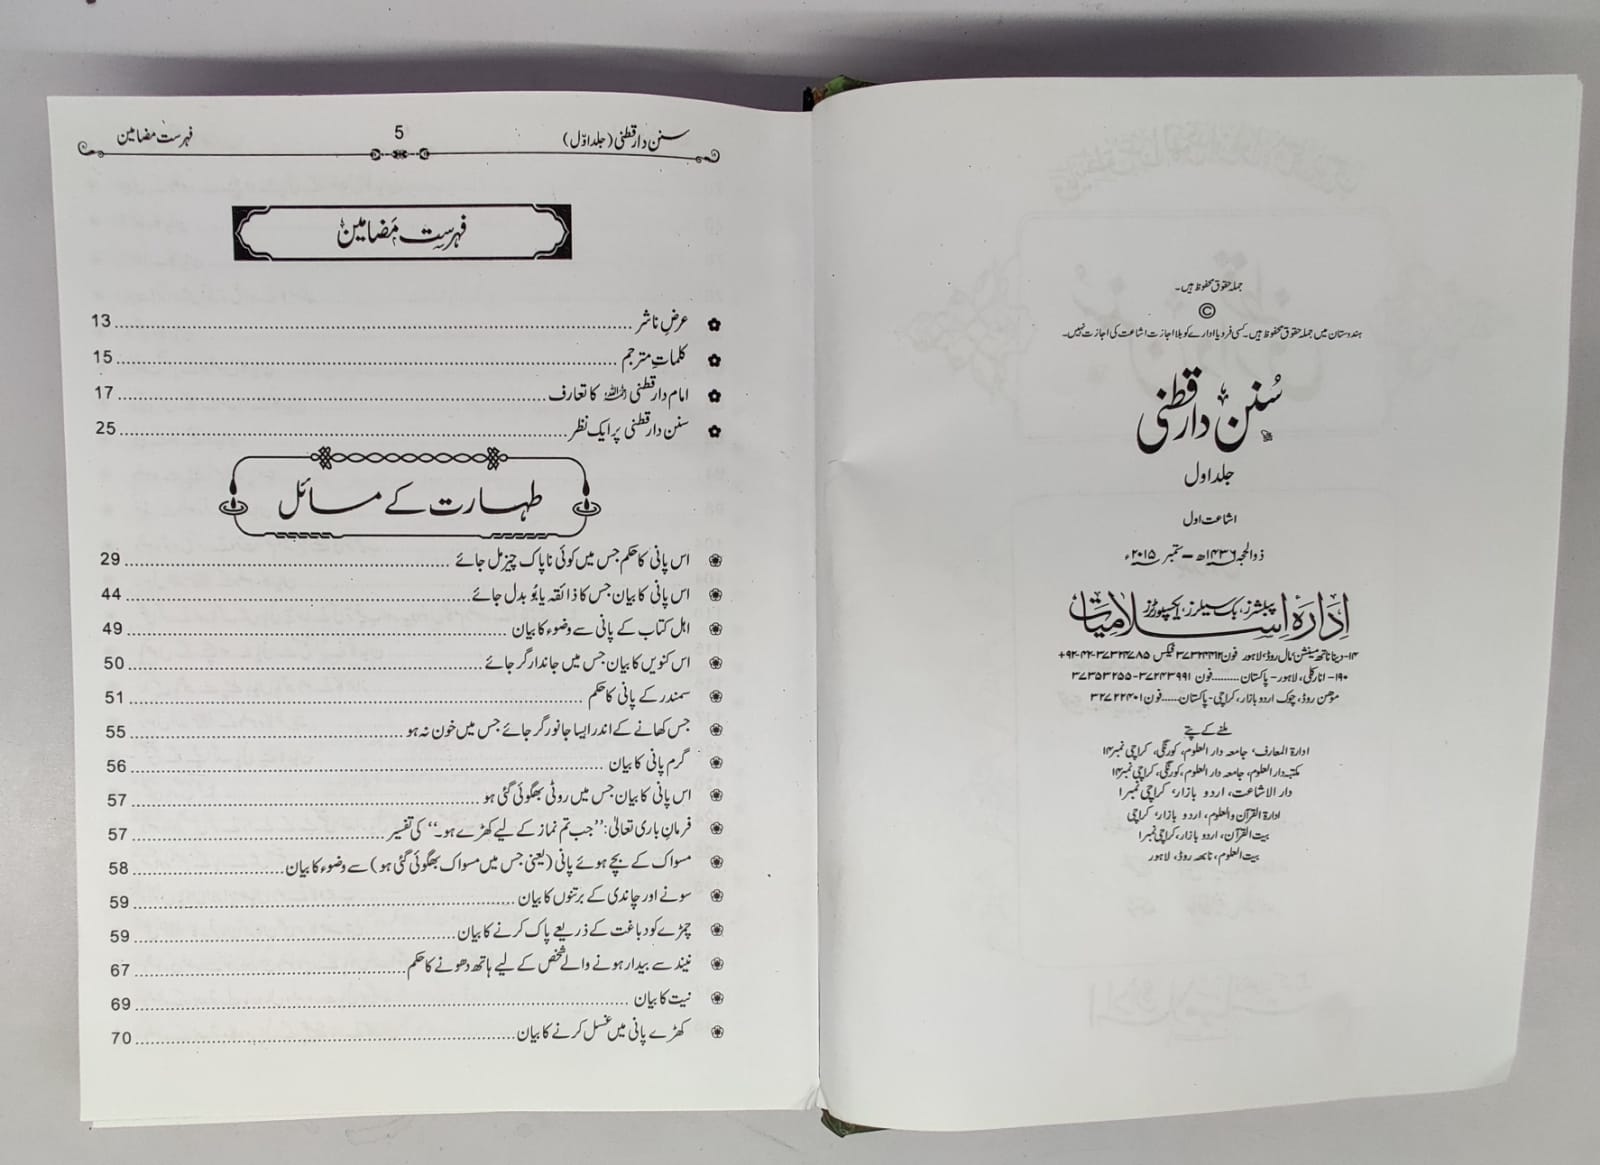 جملہ حقوق محفوظ ہیں۔
©
ہندوستان میں جملہ حقوق محفوظ ہیں۔ کسی فرد یا ادارے کو بلا اجازت اشاعت کی اجازت نہیں۔
سُنن دارقطنی
جلد اول
اشاعت اول
ذوالحجہ ۱۴۳۶ھ – ستمبر ۲۰۱۵ء
ادارۂ اسلامیات پبلشرز، بک سیلرز، ایکسپورٹرز
۱۴- دینا ناتھ مینشن مال روڈ، لاہور فون ۳۷۳۲۴۴۱۲ فیکس ۳۷۳۲۴۷۸۵-۴۲-۹۲+
۱۹۰- انارکلی، لاہور - پاکستان.........فون ۳۷۲۴۳۹۹۱-۳۷۳۵۳۲۵۵
موہن روڈ، چوک اردو بازار، کراچی - پاکستان......فون ۳۲۷۲۲۴۰۱
ملنے کے پتے
ادارۃ المعارف، جامعہ دار العلوم، کورنگی، کراچی نمبر ۱۴
مکتبہ دار العلوم، جامعہ دار العلوم، کورنگی، کراچی نمبر ۱۴
دار الاشاعت، اردو بازار، کراچی نمبر ۱
ادارۃ القرآن والعلوم، اردو بازار، کراچی
بیت القرآن، اردو بازار، کراچی نمبر ۱
بیت العلوم، نابھہ روڈ، لاہور
سنن دارقطنی (جلد اوّل) 5 فہرست مضامین
فہرست مضامین
عرضِ ناشر 13
کلماتِ مترجم 15
امام دارقطنی رحمہ اللہ کا تعارف 17
سنن دارقطنی پر ایک نظر 25
طہارت کے مسائل
اس پانی کا حکم جس میں کوئی ناپاک چیز مل جائے 29
اس پانی کا بیان جس کا ذائقہ یا بُو بدل جائے 44
اہل کتاب کے پانی سے وضوء کا بیان 49
اس کنویں کا بیان جس میں جاندار گر جائے 50
سمندر کے پانی کا حکم 51
جس کھانے کے اندر ایسا جانور گر جائے جس میں خون نہ ہو 55
گرم پانی کا بیان 56
اس پانی کا بیان جس میں روٹی بھگوئی گئی ہو 57
فرمانِ باری تعالیٰ: ”جب تم نماز کے لیے کھڑے ہو۔“ کی تفسیر 57
مسواک کے بچے ہوئے پانی (یعنی جس میں مسواک بھگوئی گئی ہو) سے وضوء کا بیان 58
سونے اور چاندی کے برتنوں کا بیان 59
چمڑے کو دباغت کے ذریعے پاک کرنے کا بیان 59
نیند سے بیدار ہونے والے شخص کے لیے ہاتھ دھونے کا حکم 67
نیت کا بیان 69
کھڑے پانی میں غسل کرنے کا بیان 70